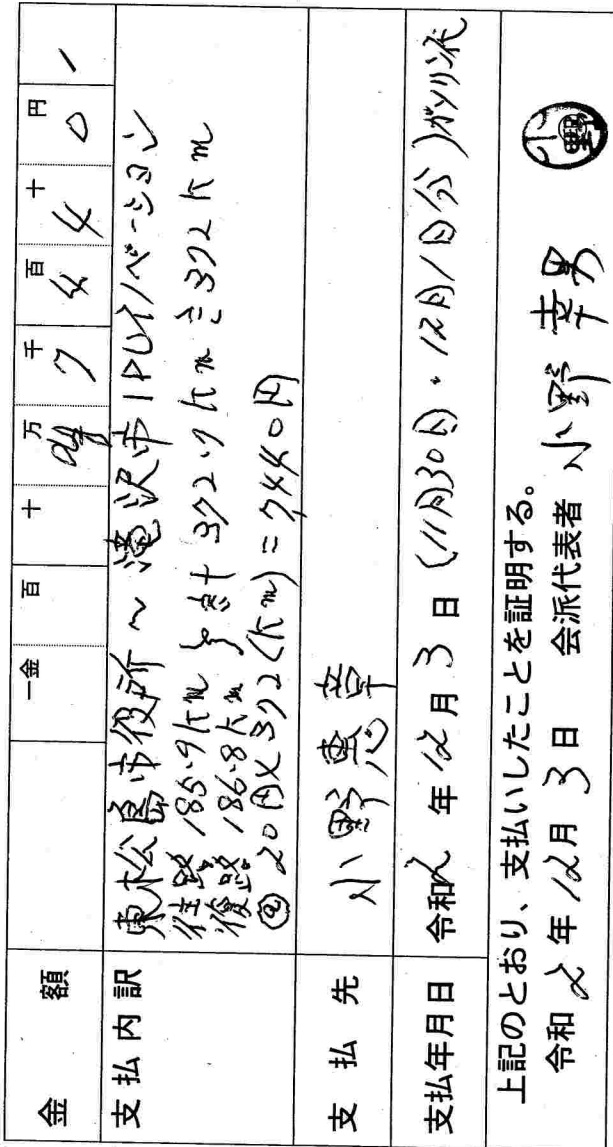 金額 一金 百 十 万 千 百 十 円
¥ 7 4 4 0 -
支払内訳 東松島市役所～滝沢市IPUイノベーション
往路 185.9km
復路 186.8km } 計 372.7km ≒ 372km
@20円×372(km)=7,440円
支払先 小野惠章
支払年月日 令和2年12月3日 (11月30日・12月1日分)ガソリン代
上記のとおり、支払いしたことを証明する。
令和2年12月3日 会派代表者 小野幸男